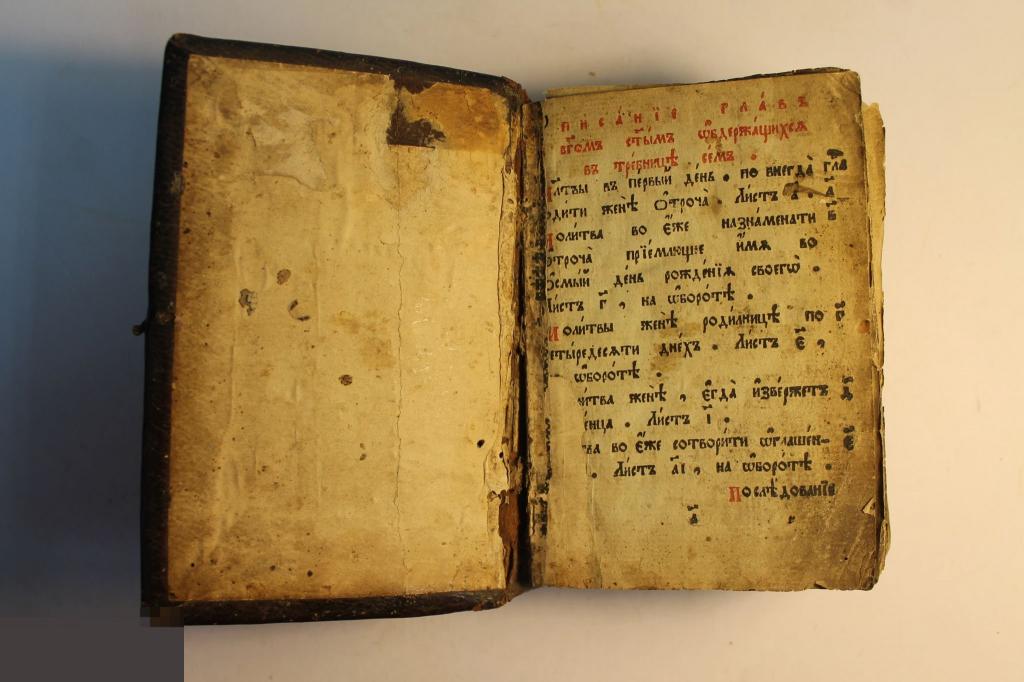 писа́нїе глáвъ
бг҃омъ ст҃ы́мъ ѡ҆бдержа́щихсѧ
въ тре́бницѣ се́мъ .
лтвы въ пе́рвый де́нь . по внегда̀ гла
роди́ти женѣ̀ ѻ҆троча̀ . Ли́стъ а҃ . а҃
Моли́тва во є҆́же назна́менати в҃
ѻтроча̀ прїе́млющее и҆́мѧ во
ѻсмы́й де́нь рожде́нїѧ своегѡ̀ .
Ли́стъ г҃ , на ѡ҆боро́тѣ .
Моли́твы женѣ̀ роди́лницѣ по г҃
четы́редесѧти дне́хъ . Ли́стъ є҃ ,
ѡ҆боро́тѣ .
и́тва женѣ̀ , є҆гда̀ и҆зве́ржетъ д҃
енца . Ли́стъ і҃ .
тва во є҆́же сотвори́ти ѡ҆глаше́н- є҃
. Ли́стъ а҃і , на ѡ҆боро́тѣ .
Послѣ́дованїе
а҃